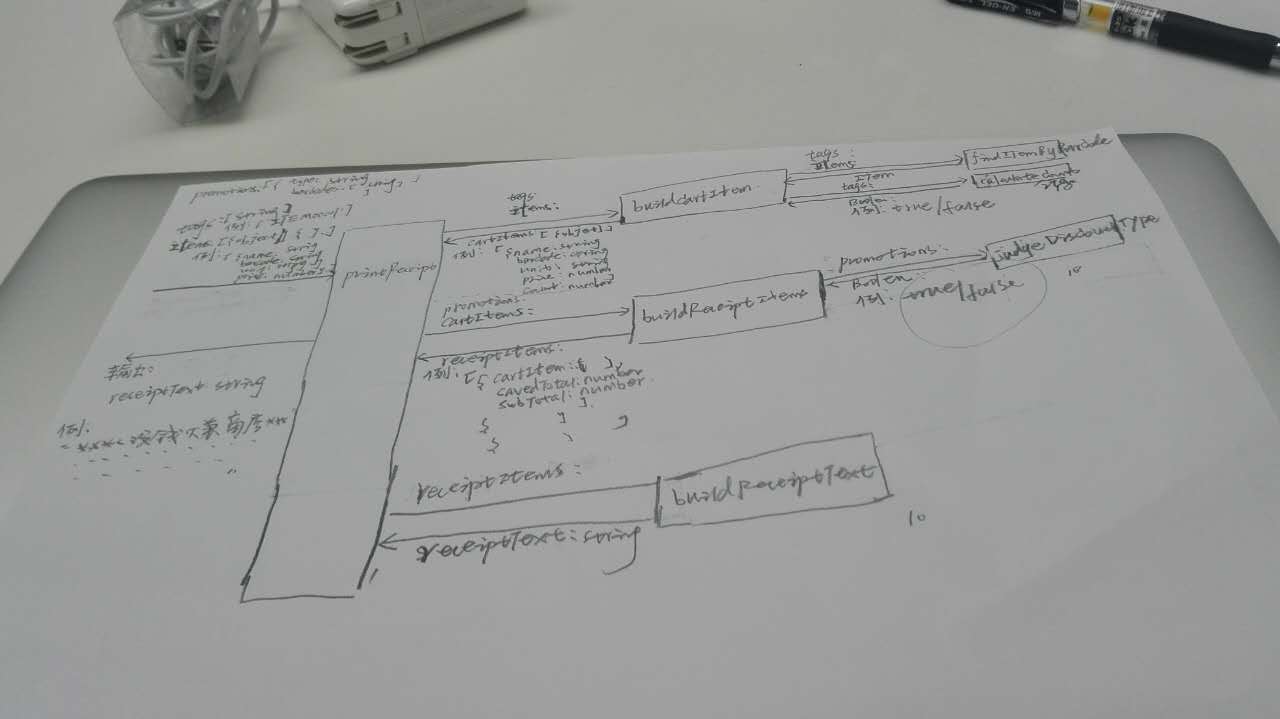 promotions: [{ type: string
barcodes: [ string ]
}
tags: [ string ]
例: [ 'ITEM000001' ]
Items: [ {object}] { }, ]
例: [ { name: string
barcode: string
unit: string
price: number }
printReceipt
输出:
receiptText string
例:
tags
Items:
cartItems [ {object} ]
例: [ {name: string
barcode: string
Unit: string
price: number
count: number
buildCartItem
tags:
Items
findItemByBarcode
Item
tags:
calculatecount
Boolen:
例: true/false
promotions:
cartItems:
buildReceiptItems
promotions:
judgeDiscountType
Boolen:
例: true/false
10
receiptItems:
例: [{ cartItem: { },
savedTotal: number
subTotal: number
} ].
{ }
{ }
receiptItems:
buildReceiptText
receiptText: string
10